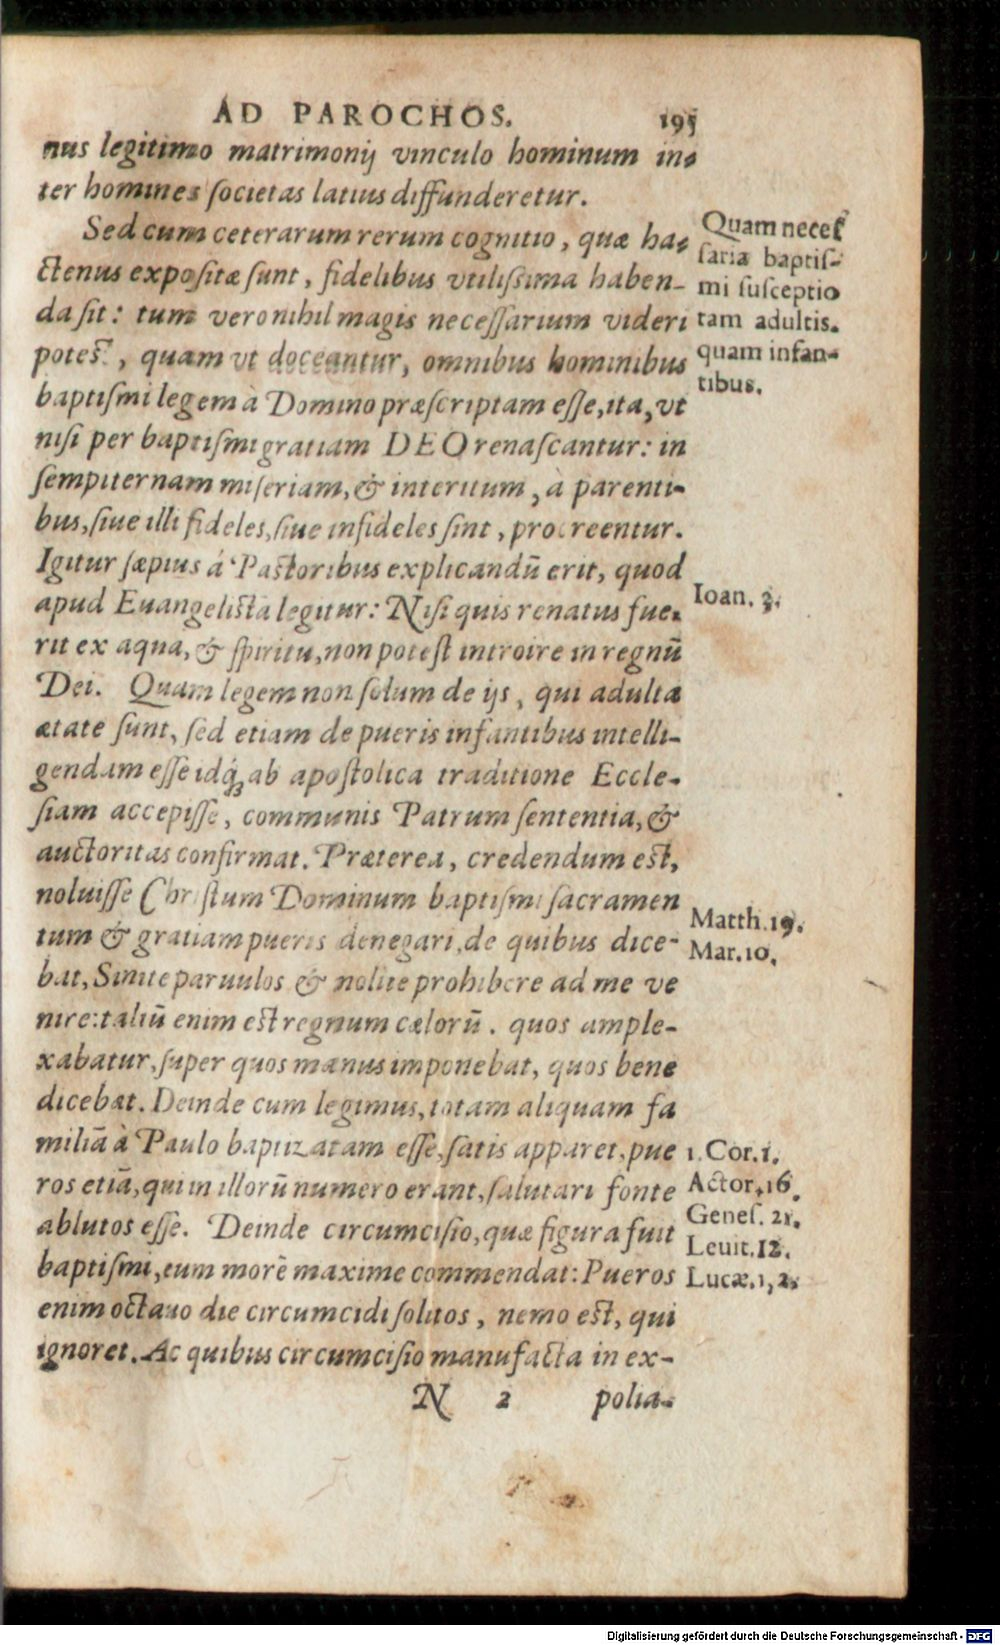 AD PAROCHOS. 195
nus legitimo matrimonij vinculo hominum in-
ter homines ſocietas latius diffunderetur.
Sed cum ceterarum rerum cognitio, quæ ha-
ctenus expoſitæ ſunt, fidelibus vtiliſsima haben-
da ſit: tum vero nihil magis neceſſarium videri
poteſt, quam vt doceantur, omnibus hominibus
baptiſmi legem à Domino præſcriptam eſſe, ita, vt
niſi per baptiſmi gratiam DEO renaſcantur: in
ſempiternam miſeriam, & interitum, à parenti-
bus, ſiue illi fideles, ſiue infideles ſint, procreentur.
Igitur ſæpius á Paſtoribus explicandũ erit, quod
apud Euangeliſta legitur: Niſi quis renatus fue-
rit ex aqua, & ſpiritu, non poteſt introire in regnũ
Dei. Quam legem non ſolum de ijs, qui adulta
ætate ſunt, ſed etiam de pueris infantibus intelli-
gendam eſſe idq́ꝫ ab apoſtolica traditione Eccle-
ſiam accepiſſe, communis Patrum ſententia, &
auctoritas confirmat. Præterea, credendum eſt,
noluiſſe Chriſtum Dominum baptiſmi ſacramen
tum & gratiam pueris denegari, de quibus dice-
bat, Sinite paruulos & nolite prohibere ad me ve
nire: taliũ enim eſt regnum cælorũ. quos ample-
xabatur, ſuper quos manus imponebat, quos bene
dicebat. Deinde cum legimus, totam aliquam fa
miliã à Paulo baptizatam eſſe, ſatis apparet, pue
ros etiã, qui in illorũ numero erant, ſalutari fonte
ablutos eſſe. Deinde circumciſio, quæ figura fuit
baptiſmi, eum morẽ maxime commendat: Pueros
enim octauo die circumcidi ſolitos, nemo eſt, qui
ignoret. Ac quibus circumciſio manufacta in ex-
N 2 polia-
Quam neceſ
ſaria baptiſ-
mi ſuſceptio
tam adultis.
quam infan-
tibus.
Ioan. 3.
Matth. 19.
Mar. 10.
1. Cor. 1.
Actor. 16.
Geneſ. 21.
Leuit. 12.
Lucæ. 1, 2.
Digitalisierung gefördert durch die Deutsche Forschungsgemeinschaft - DFG